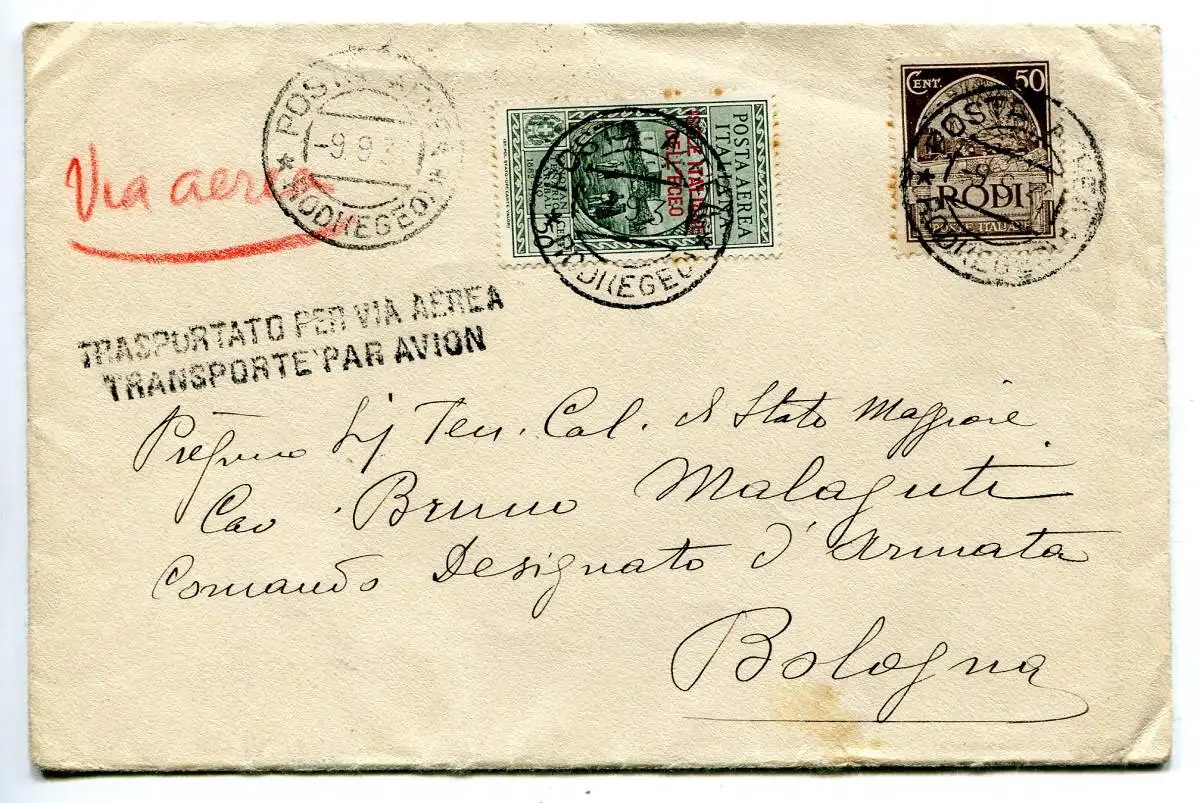 Via aerea
POSTA AEREA
-9.9.3
* RODI (EGEO) *
POSTA AEREA
ITALIANA
ISOLE ITALIANE
DELL'EGEO
50
* RODI (EGEO) *
CENT. 50
RODI
POSTE ITALIANE
POSTA AEREA
* RODI (EGEO) *
TRASPORTATO PER VIA AEREA
TRANSPORTE PAR AVION
Sig Ten. Col. di Stato Maggiore
Cav Bruno Malaguti
Comando Designato d'Armata
Bologna